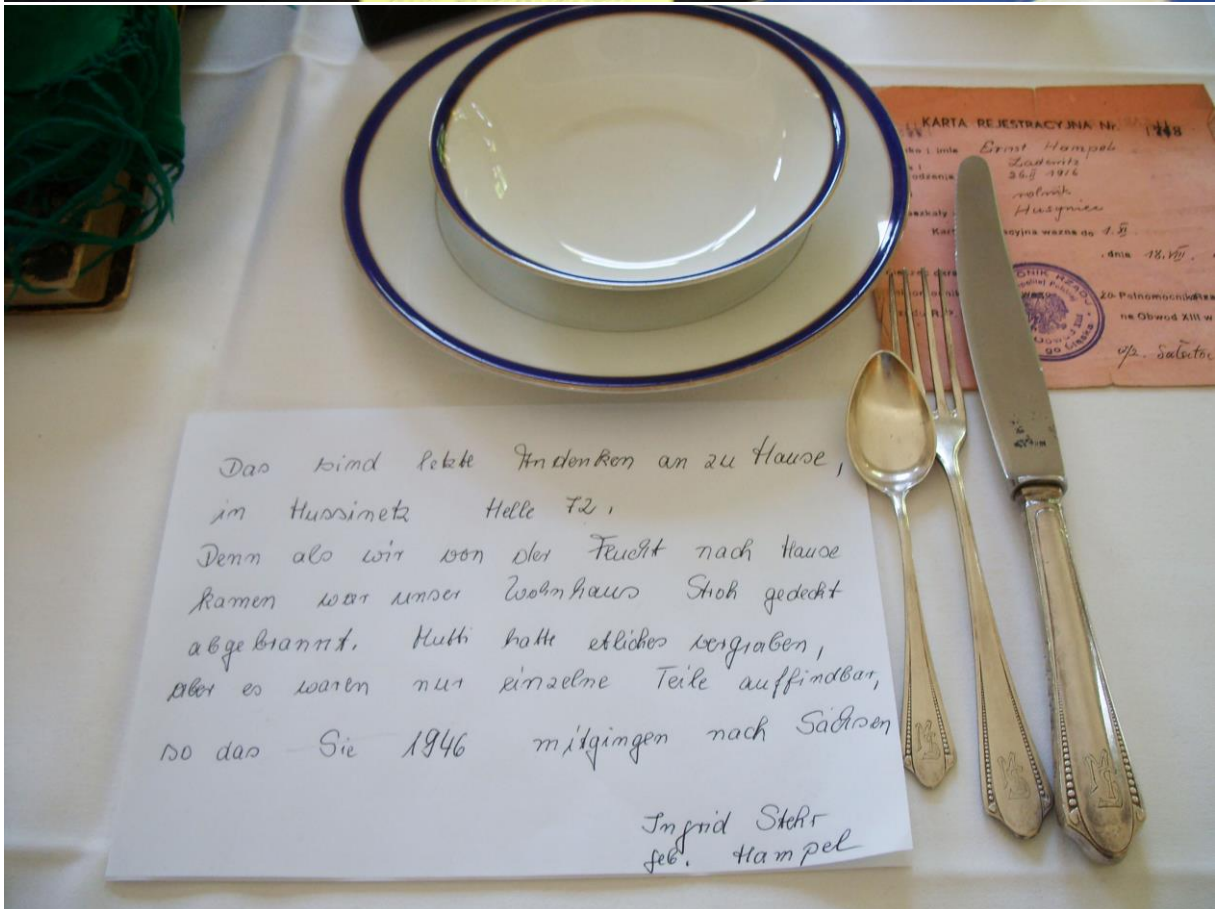 KARTA REJESTRACYJNA Nr.
imię Ernst Hampel
26.II 1916
rolnik
Husyniec
ważna do 1.XI
dnia 18.VIII.
ne Obwód XIII w
Das sind letzte Andenken an zu Hause,
in Hussinetz Helle 72,
Denn als wir von der Flucht nach Hause
kamen war unser Wohnhaus Stroh gedeckt
abgebrannt. Mutti hatte etliches vergraben,
aber es waren nur einzelne Teile auffindbar,
so das Sie 1946 mitgingen nach Sachsen
Ingrid Stehr
geb. Hampel